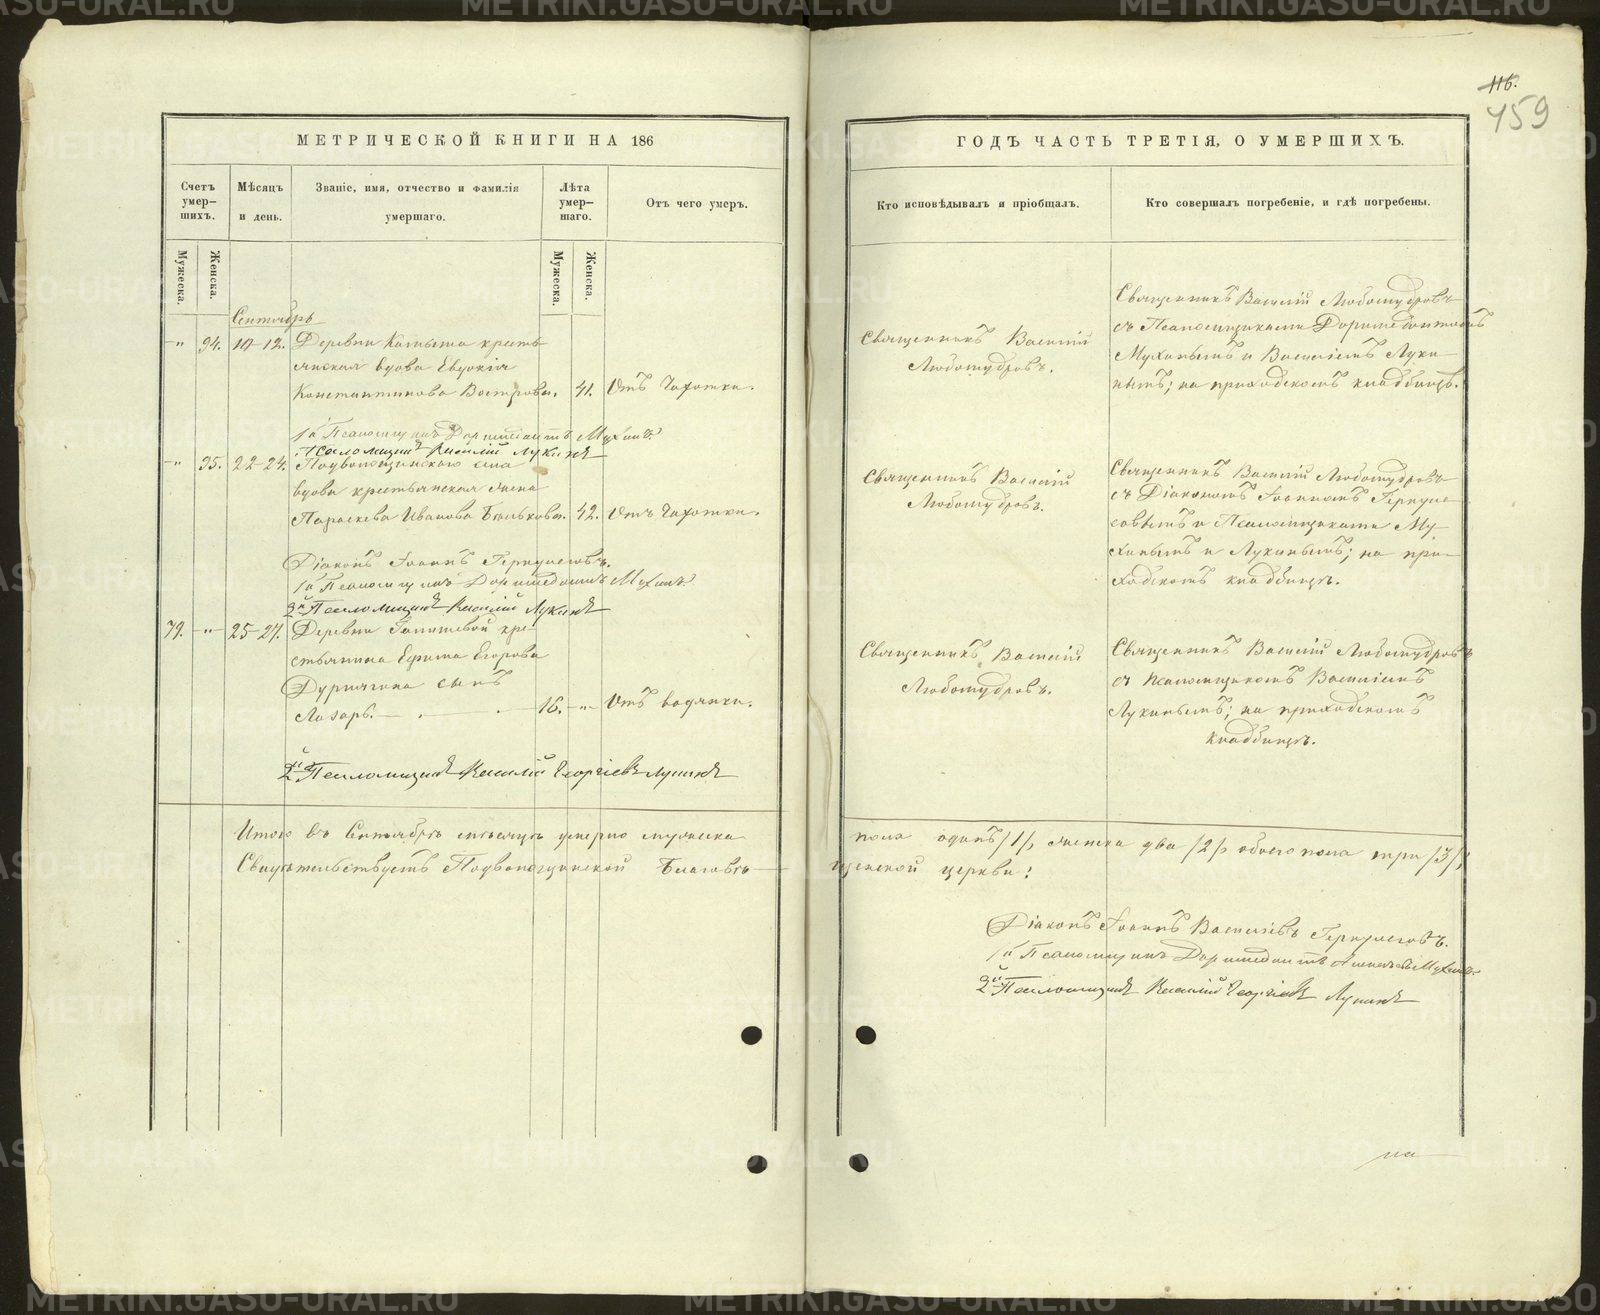 116.
459
МЕТРИЧЕСКОЙ КНИГИ НА 186
Счетъ умер-шихъ.
Мѣсяцъ и день.
Званіе, имя, отчество и фамилія умершаго.
Лѣта умер-шаго.
Отъ чего умеръ.
Мужеска.
Женска.
Мужеска.
Женска.
Сентябрь
-"- 94. 10-12. Деревни Камышта кресть-
янская вдова Евдокія
Константинова Вострова. 41. Отъ Чахотки.
1й Псаломщикъ Доримедонтъ Мухинъ.
Псаломщикъ Василій Лукинъ
-"- 95. 22-24. Подволошинскаго села
вдова крестьянская жена
Параскева Иванова Бѣлькова. 42. Отъ Чахотки.
Діаконъ Іоаннъ
1й Псаломщикъ Доримедонтъ Мухинъ.
2й Псаломщикъ Василій Лукинъ
79. -"- 25-27. Деревни кре-
стьянина Ефима Егорова
сынъ
Лазарь. 16. -"- Отъ водянки.
2й Псаломщикъ Василій Георгіевъ Лукинъ
Итого въ Сентябрѣ мѣсяцѣ умерло мужеска
Свидѣтельствуетъ Подволошинской Благовѣ-
ГОДЪ ЧАСТЬ ТРЕТІЯ, О УМЕРШИХЪ.
Кто исповѣдывалъ и пріобщалъ.
Кто совершалъ погребеніе, и гдѣ погребены.
Священникъ Василій
Любомудровъ.
Священникъ Василій Любомудровъ
съ Псаломщиками Доримедонтомъ
Мухинымъ и Василіемъ Луки-
нымъ; на приходскомъ кладбищѣ.
Священникъ Василій
Любомудровъ.
Священникъ Василій Любомудровъ
съ Діакономъ Іоанномъ
и Псаломщиками Му-
хинымъ и Лукинымъ; на при-
ходскомъ кладбищѣ.
Священникъ Василій
Любомудровъ.
Священникъ Василій Любомудровъ
съ Псаломщикомъ Василіемъ
Лукинымъ; на приходскомъ
кладбищѣ.
пола одинъ /1/, женска два /2/ обоего пола три /3/;
щенской церкви:
Діаконъ Іоаннъ Василіевъ
1й Псаломщикъ Доримедонтъ Мухинъ
2й Псаломщикъ Василій Георгіевъ Лукинъ
на
METRIKI.GASO-URAL.RU